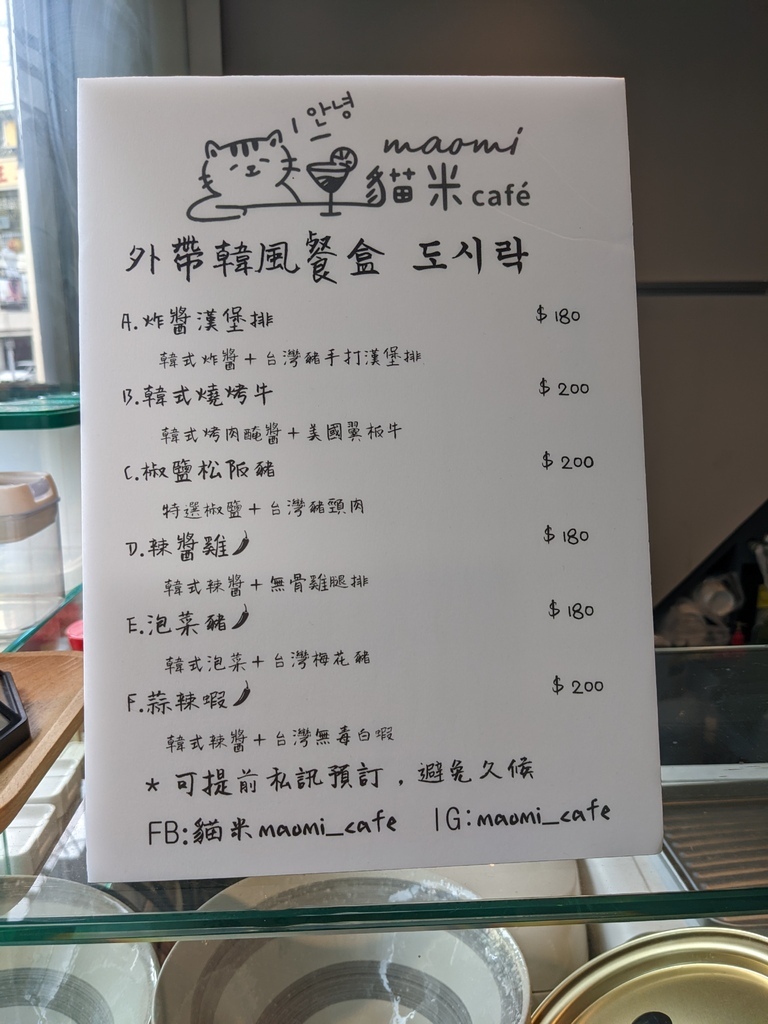 안녕
maomi
貓米 café
外帶韓風餐盒 도시락
A.炸醬漢堡排 $180
韓式炸醬+台灣豬手打漢堡排
B.韓式燒烤牛 $200
韓式烤肉醃醬+美國翼板牛
C.椒鹽松阪豬 $200
特選椒鹽+台灣豬頸肉
D.辣醬雞 $180
韓式辣醬+無骨雞腿排
E.泡菜豬 $180
韓式泡菜+台灣梅花豬
F.蒜辣蝦 $200
韓式辣醬+台灣無毒白蝦
*可提前私訊預訂,避免久候
FB:貓米maomi_cafe IG:maomi_cafe